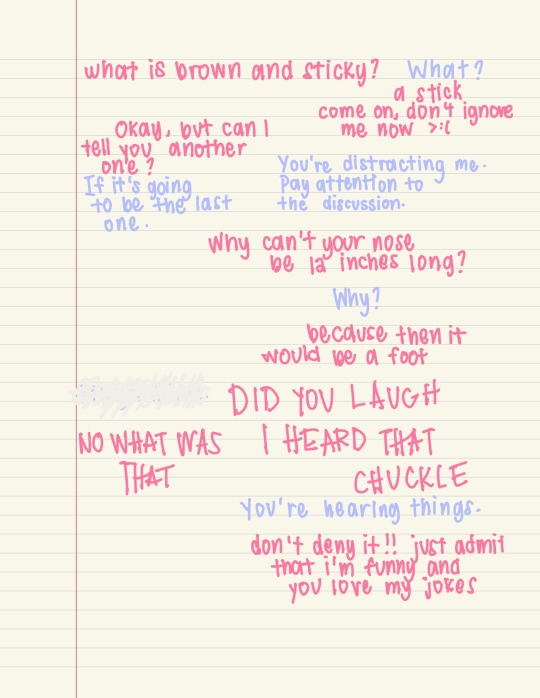 what is brown and sticky? What?
a stick
come on, don't ignore
me now >:(
You're distracting me.
Pay attention to
the discussion.
Okay, but can I
tell you another
one?
If it's going
to be the last
one.
Why can't your nose
be 12 inches long?
Why?
because then it
would be a foot
DID YOU LAUGH
NO WHAT WAS
THAT
I HEARD THAT
CHUCKLE
You're hearing things.
don't deny it!! just admit
that i'm funny and
you love my jokes